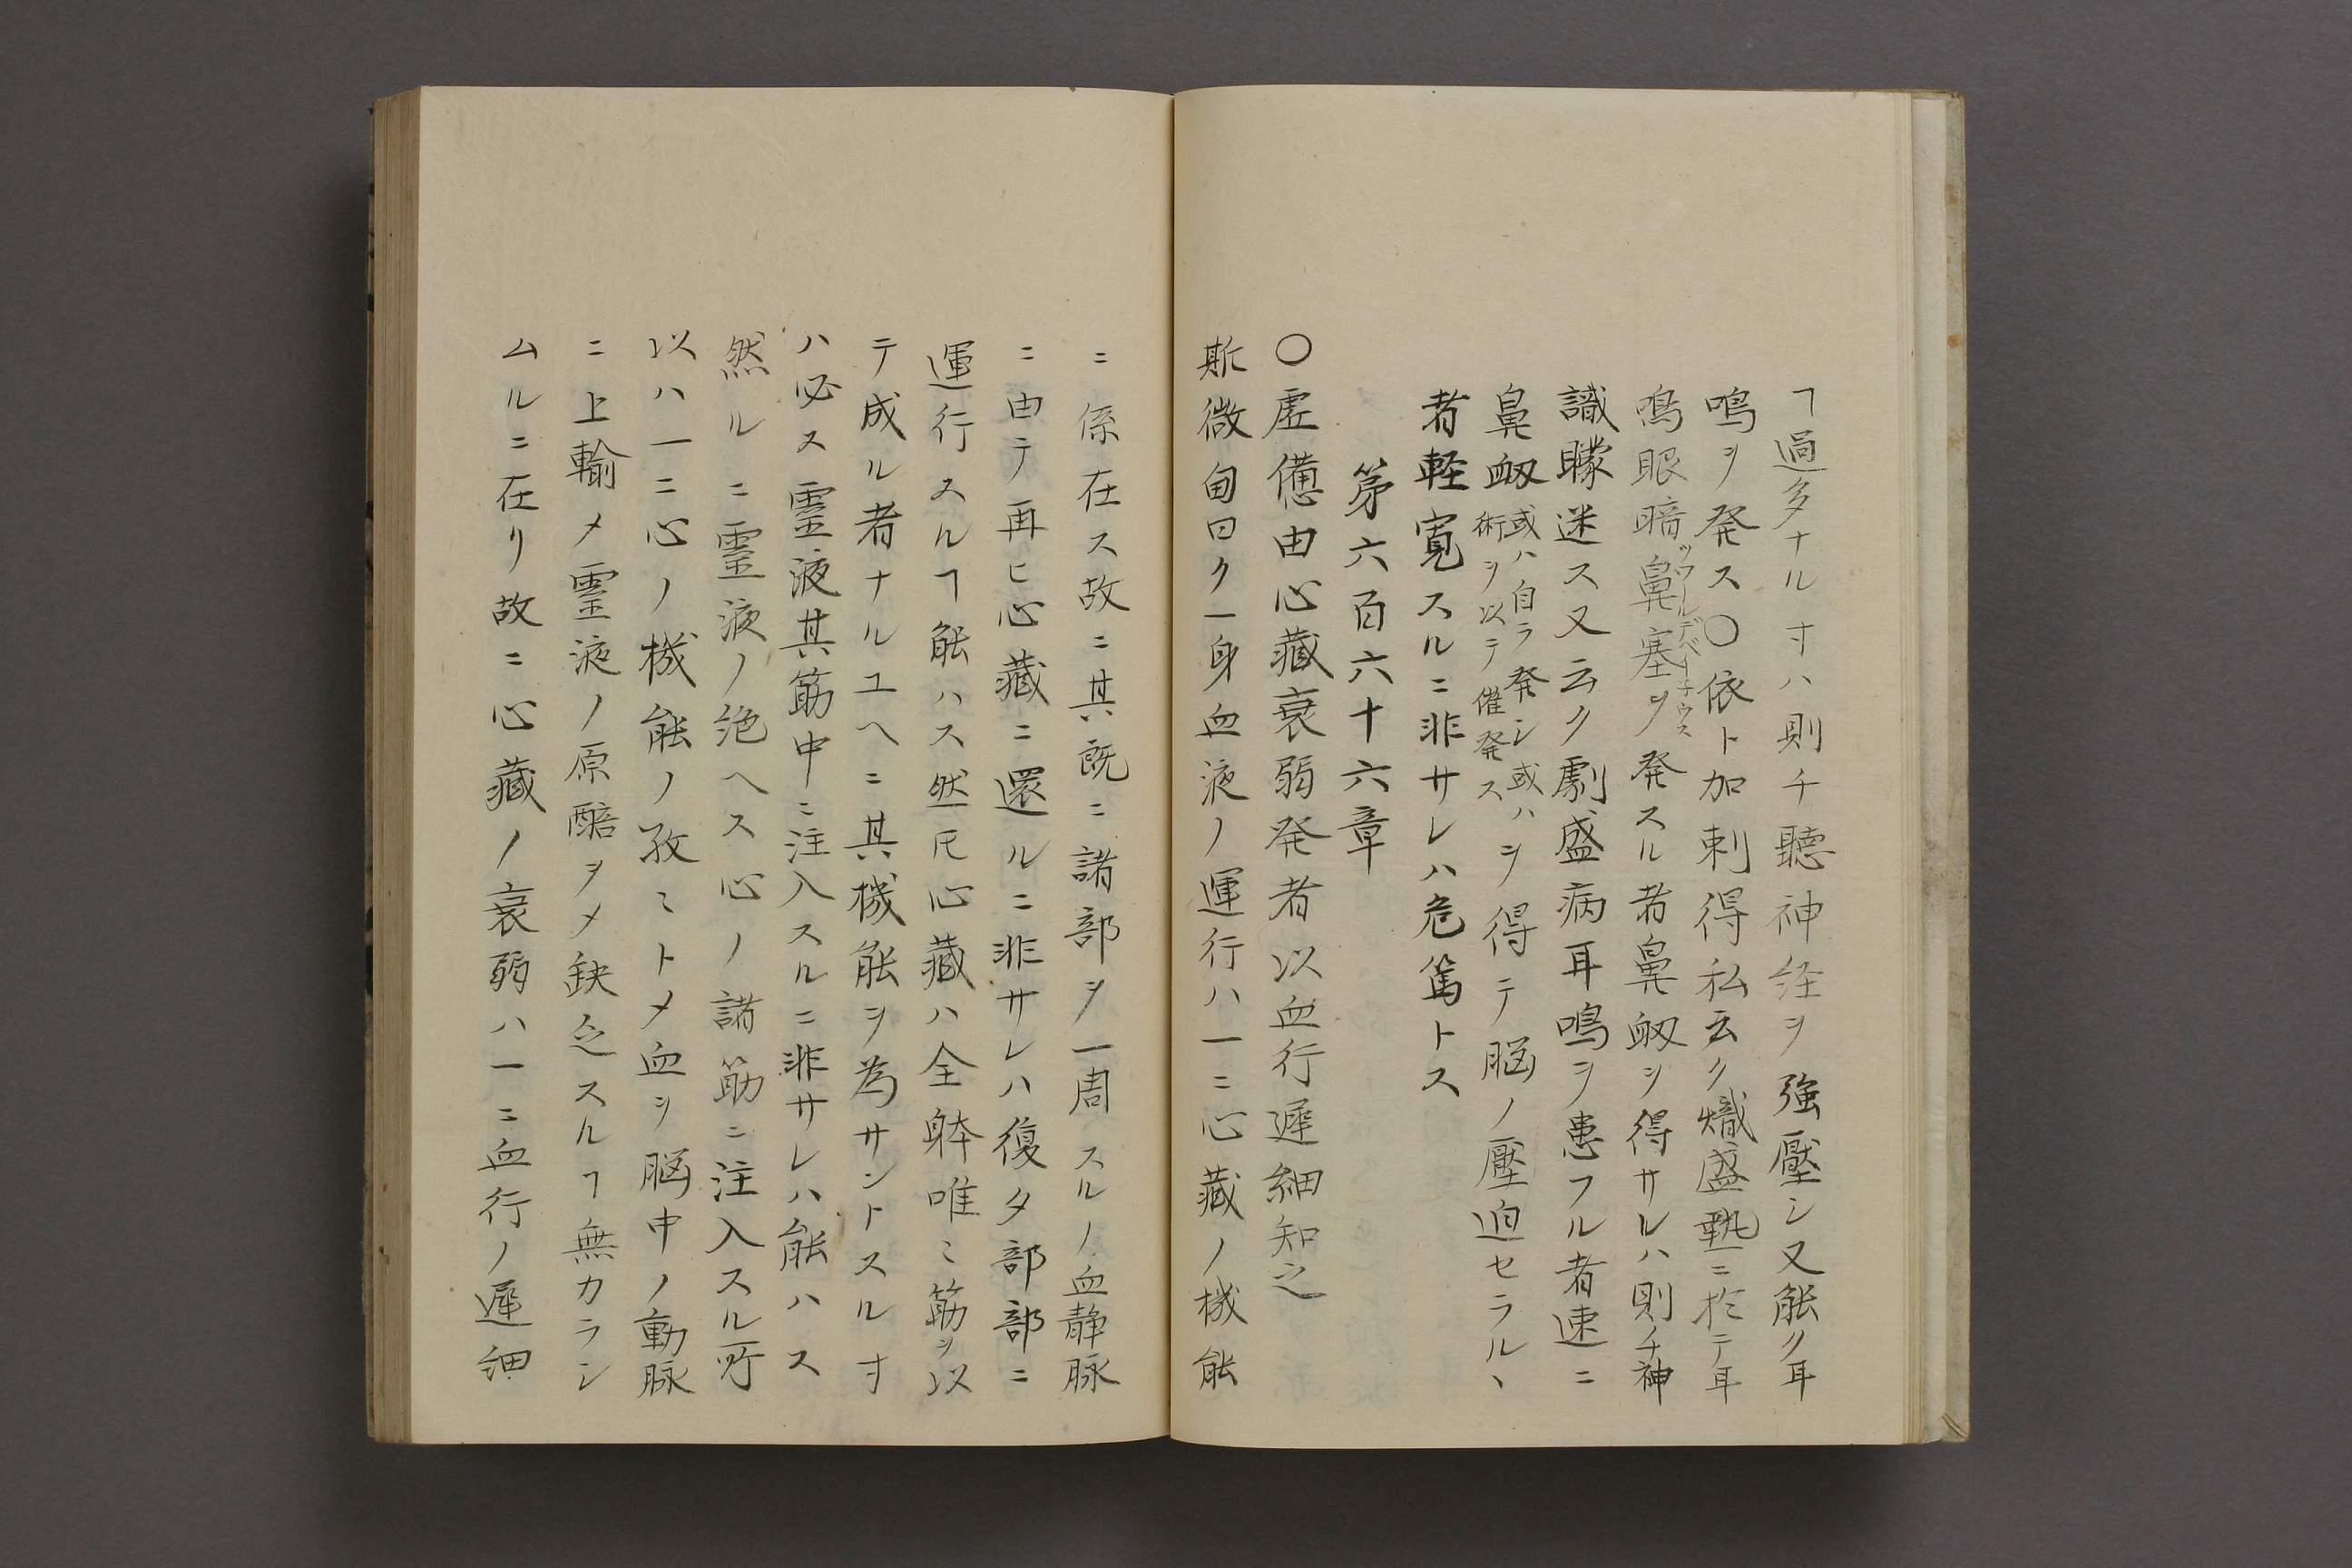 ヿ過多ナル寸ハ則チ聽神経ヲ強壓シ又能ク耳
鳴ヲ発ス〇依ト加刺得私云ク熾盛熱ニ於テ耳
鳴眼暗鼻塞ヲ発スル者鼻衂ヲ得サルハ則チ神
識朦迷ス又云ク劇盛病耳鳴ヲ患フル者速ニ
鼻衂或ハ自ラ発シ或ハ術ヲ以テ催発スヲ得テ脳ノ壓迫セラルヽ
者軽寛スルニ非サレハ危篤トス
第六百六十六章
〇虚憊由心藏衰弱発者以血行遲細知之
斯微甸曰ク一身血液ノ運行ハ一ニ心藏ノ機能
ニ係在ス故ニ其既ニ諸部ヲ一周スルノ血静脉
ニ由テ再ヒ心藏ニ還ルニ非サレハ復タ部部ニ
運行スルヿ能ハス然𪜈心藏ハ全躰唯ミ筋ヲ以
テ成ル者ナルユヘニ其機能ヲ為サントスル寸
ハ必ス霊液其筋中ニ注入スルニ非サレハ能ハス
然ルニ霊液ノ絶ヘス心ノ諸筋ニ注入スル所
以ハ一ニ心ノ機能ノ孜ミトメ血ヲ脳中ノ動脉
ニ上輸メ霊液ノ原醅ヲメ缺乏スルヿ無カラシ
ムルニ在リ故ニ心藏ノ衰弱ハ一ニ血行ノ遲細